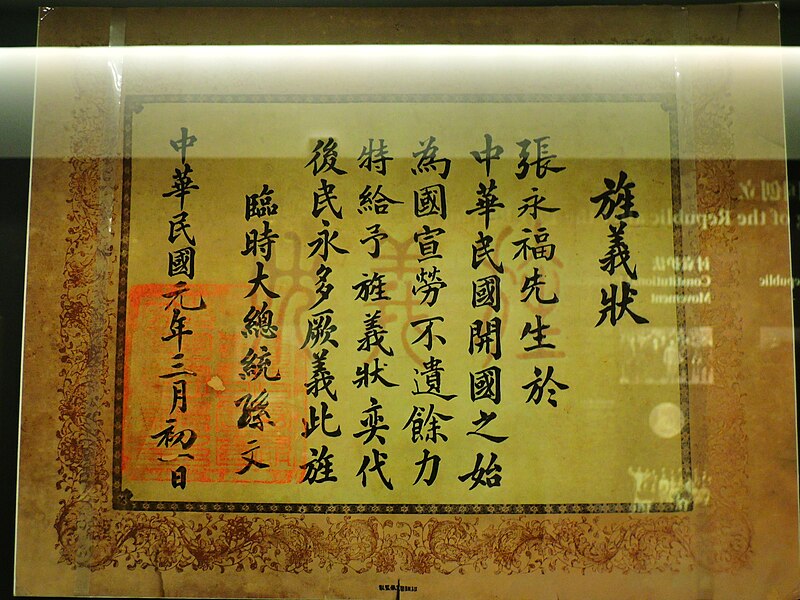 旌義狀
張永福先生於
中華民國開國之始
為國宣勞不遺餘力
特給予旌義狀奕代
後民永多厥義此旌
臨時大總統孫文
中華民國元年三月初一日
旌義狀
創立
of the Republic
Constitution
Movement